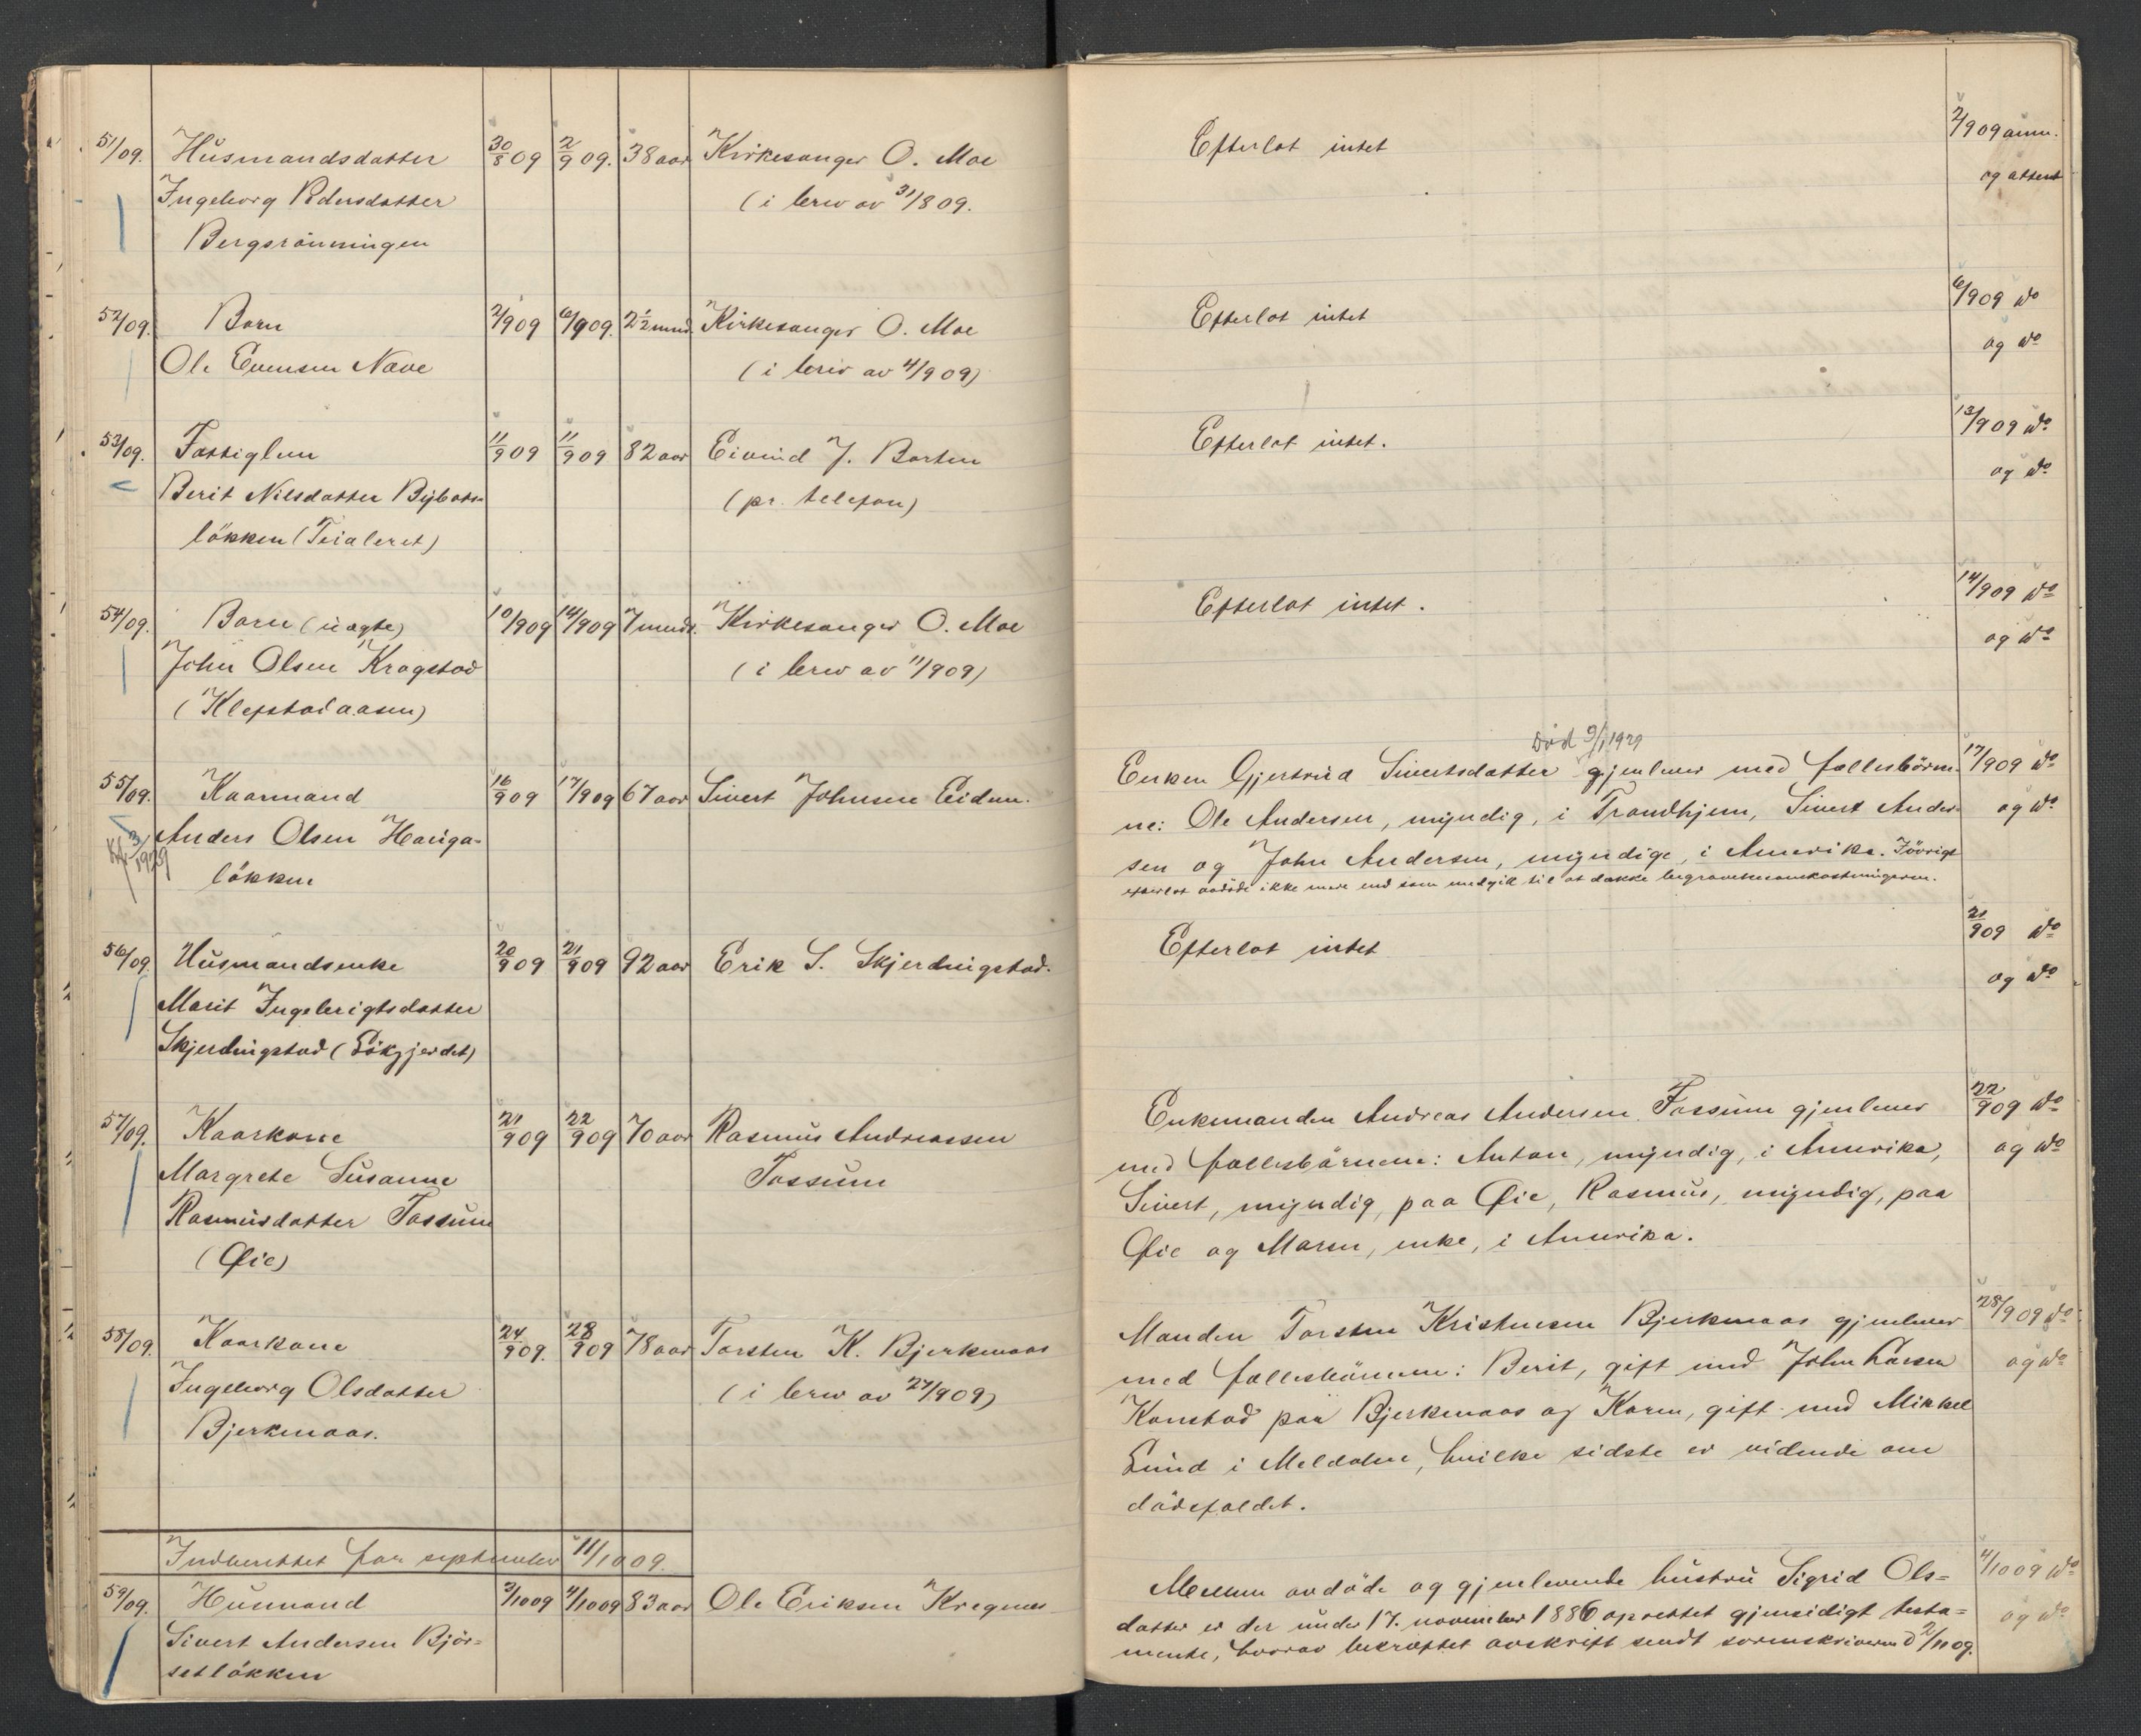 51/09. Husmandsdatter 30/8 09 2/9 09. 38 aar Kirkesanger O. Moe Efterlot intet 2/9 09 anm.
Ingeborg Pedersdatter (i brev av 31/8 09. og attest
Bergsrönningen
52/09. Barn 2/9 09 6/9 09. 2½ mnd. Kirkesanger O. Moe Efterlot intet 6/9 09 do
Ole Evensen Nave (i brev av 4/9 09) og do
53/09. Fattiglem 11/9 09 11/9 09 82 aar Eivind J. Borten Efterlot intet. 13/9 09 do
Berit Nilsdatter (pr. telefon) og do
lökken (Teialeret)
54/09. Barn (uægte) 10/9 09 14/9 09 7 mndr. Kirkesanger O. Moe Efterlot intet. 14/9 09 do
John Olsen Kragstad (i brev av 11/9 09) og do
(Klefstadaasen)
Död 9/1 1929
55/09. Kaarmand 16/9 09 17/9 09 67 aar Sivert Johnsen Eidem. Enken Gjertrud Sivertsdatter gjenlever med fællesbörne- 17/9 09 do
Anders Olsen Hauga- ne: Ole Andersen, myndig, i Trondhjem, Sivert Ander- og do
3/1 1929
lökken sen og John Andersen, myndige, i Amerika. Iövrigt
efterlot avdöde ikke mere end som medgik til at dække begravelsesomkostningerne.
56/09. Husmandsenke 20/9 09 21/9 09 92 aar Erik S. Skjerdingstad. Efterlot intet 21/9 09 do
Marit Ingebrigtsdatter og do
Skjerdingstad (Lökgjerdet)
57/09. Kaarkone 21/9 09 22/9 09 70 aar Rasmus Andreassen Enkemanden Andreas Andersen Fossum gjenlever 22/9 09 do
Margrete Susanne Fossum med fællesbörnene: Anton, myndig, i Amerika, og do
Rasmusdatter Fossum Sivert, myndig, paa Øie, Rasmus, myndig, paa
(Øie) Øie og Maren, enke, i Amerika.
58/09. Kaarkone 24/9 09. 28/9 09 78 aar Torsten K. Bjerkmaas Manden Torsten Kristensen Bjerkmaas gjenlever 28/9 09 do
Ingeborg Olsdatter (i brev av 27/9 09) med fællesbörnene: Berit, gift med John Larsen og do
Bjerkmaas. Konstad paa Bjerkmaas og Karen, gift med Mikkel
Lund i Meldalen, hvilke sidste er vidende om
dödsfaldet.
Indberettet for september 11/10 09.
59/09. Husmand 3/10 09 4/10 09 83 aar Ole Eriksen Kregnes Mellem avdöde og gjenlevende hustru Sigrid Ols- 4/10 09 do
Sivert Andersen Björ- datter er der under 17. november 1886 oprettet gjensidigt testa- og do
setlökken mente, hvorav bekræftet avskrift sendt sorenskriveren d 2/11 09.